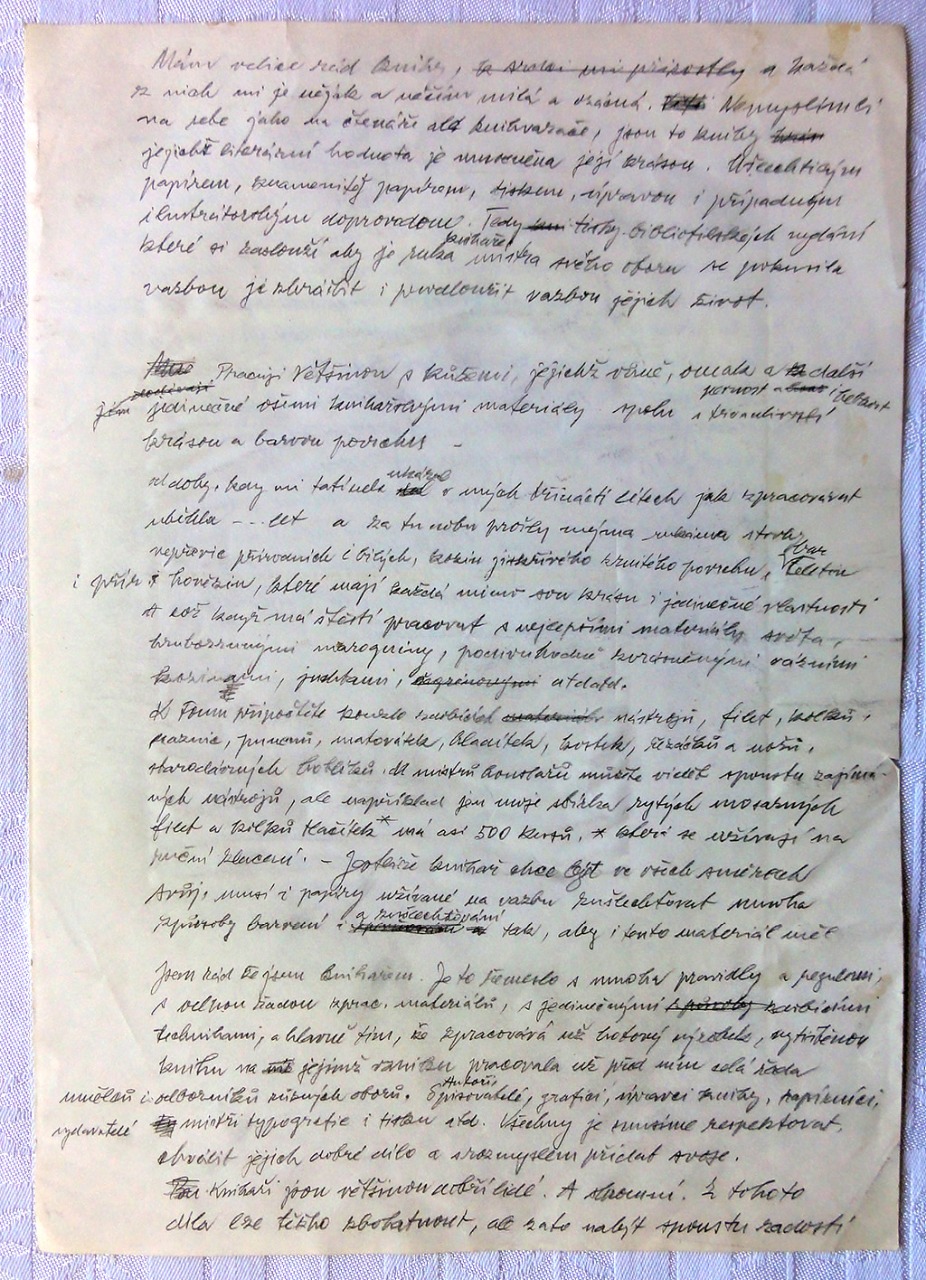 Mám velice rád knihy, k srdci mi přirostly a každá
z nich mi je nějak a něčím milá a vzácná. Nemyslím-li
na sebe jako na čtenáře ale knihvazače, jsou to knihy
jejichž literární hodnota je umocněna její krásou. Ušlechtilým
papírem, znamenitým papírem, tiskem, úpravou i případným
ilustrátorským doprovodem. Tedy tisky bibliofilských vydání
které si zaslouží aby je ruka knihaře mistra svého oboru se pokusila
vazbou je zkrášlit i prodloužit vazbou jejich život.
Pracuji většinou s kůžemi, jejichž vůně, omak a další
jsou jedinečné všemi knihařskými materiály spolu s trvanlivostí pevnost a hebkost
krásou a barvou povrchu –
od doby, kdy mi tatínek ukázal v mých třinácti letech jak zpracovávat
uběhla -- let a za tu dobu prošly mýma rukama stovky
vepřovic přírodních i bílých, kozin jiskřivého zrnitého povrchu, bar teletin
i přír hovězin, které mají každá mimo svou krásu i jedinečné vlastnosti
A což když má štěstí pracovat s nejlepšími materiály světa,
hrubozrnnými maroquiny, podivuhodně zvrásněnými vázními
kozinami, juchtami, šagrénovými atd atd.
K tomu připočtěte kouzlo zvláštních nástrojů, filet, kolků,
raznic, puncnů, matovátek, hladítek, kostek, řezáčků a nožů,
starodávných hoblíků. U mistrů koželuhů můžete vidět spoustu zajíma-
vých nástrojů, ale například jen moje sbírka rytých mosazných
filet a kolků tlačítek* má asi 500 kusů. * které se užívají na
ruční zlacení. – Jestliže knihař chce být ve všech směrech
svůj, musí i papíry užívané na vazbu zušlechťovat mnoha
způsoby barvení a zušlechťování tak, aby i tento materiál měl
Jsem rád že jsem knihařem. Je to řemeslo s mnoha pravidly a regulemi,
s velkou řadou zprac. materiálů, s jedinečnými způsoby zvláštními
technikami, a hlavně tím, že zpracovává už hotový výrobek, vytištěnou
knihu na jejímž vzniku pracovala už před ním celá řada
umělců i odborníků různých oborů. Autoři Spisovatelé, grafici, úpravci knihy, papírníci,
vydavatelé mistři typografie i tisku atd. Všechny je musíme respektovat,
chválit jejich dobré dílo a s rozmyslem přidat svoje.
Knihaři jsou většinou dobří lidé. A skromní. Z tohoto
díla lze těžko zbohatnout, ale zato nabýt spoustu radosti